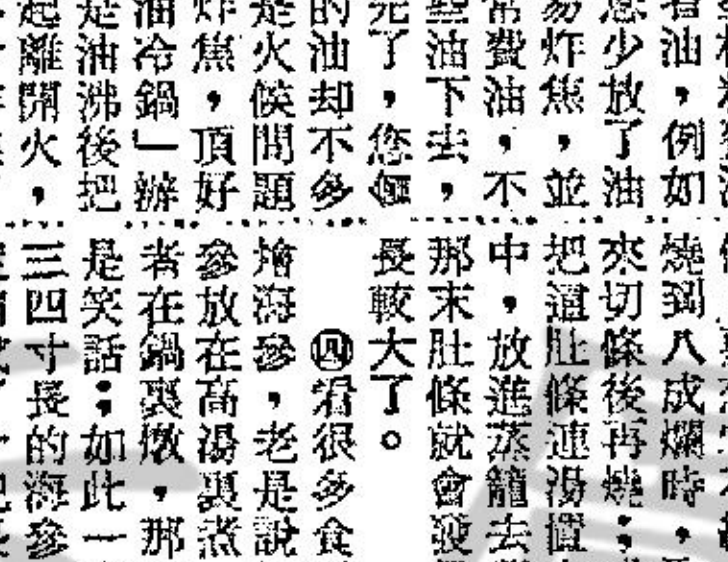 油,例如
您少放了油
易炸焦,並
常費油,不
些油下去,
完了,您僅
的油却不多
是火候問題
炸焦,頂好
油冷鍋」辦
是油沸後把
起離開火,
燒到八成爛時,
來切條後再燒;
把這肚條連湯置
中,放進蒸籠去
那末肚條就會發
長較大了。
㊃很多食
燴海參,老是說
參放在高湯裏煮
者在鍋裏燉,那
是笑話:如此一
三四寸長的海參